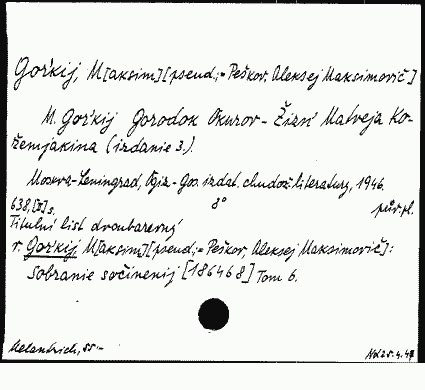 Goŕkij, M[aksim][pseud.;= Peškov, Aleksej Maksimovič]
M. Goŕkij Gorodok Okurov - Žizń Matveja Ko-
žemjakina (izdanie 3.).
Moskva-Leningrad, Ogiz- Gos. izdat. chudož. literatury, 1946.
638,[II]s. 8° pův. pl.
Titulní list dvoubarevný
v. Goŕkij, M[aksim][pseud.;= Peškov, Aleksej Maksimovič]:
Sobranie sočinenij [186468] Tom 6.
Melantrich, 55.-